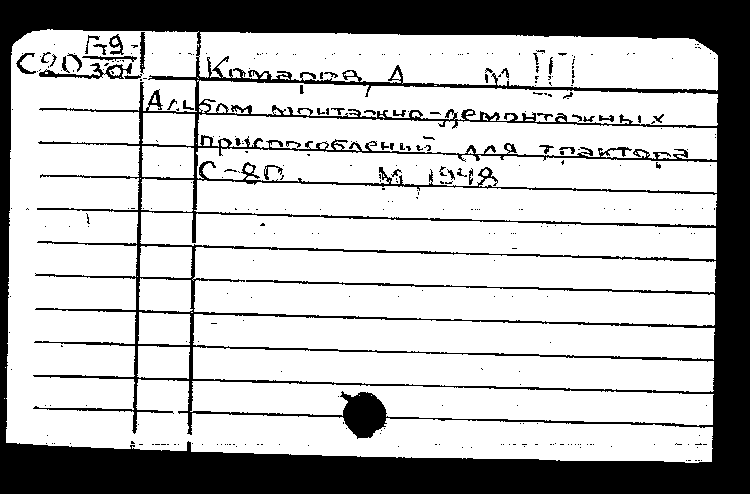 С20 Г-9
301
Комаров, А М [I]
Альбом монтажно-демонтажных
приспособлений для трактора
С-80. М, 1948